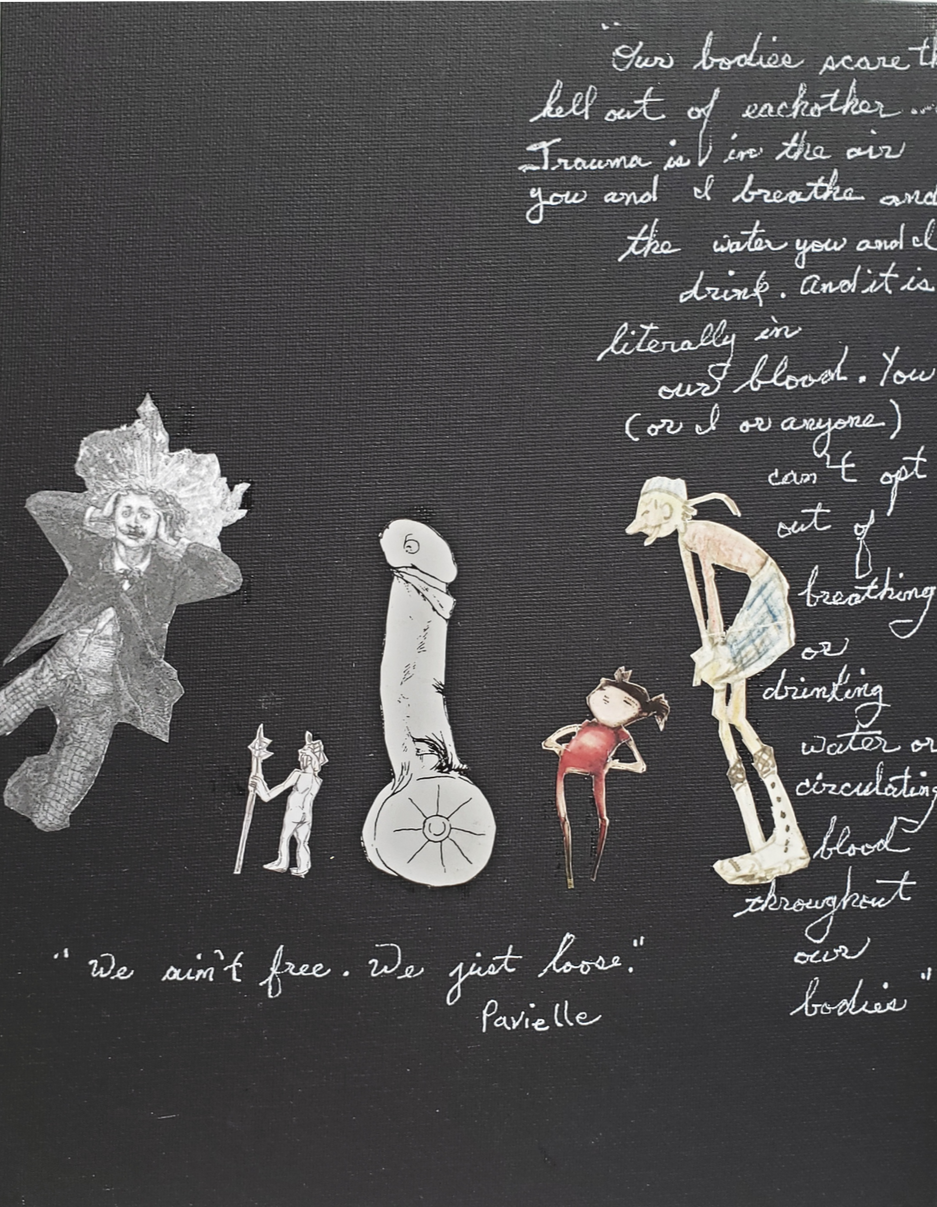 "Our bodies scare th
hell out of eachother ...
Trauma is in the air
you and I breathe and
the water you and I
drink. And it is
literally in
our blood. You
(or I or anyone)
can't opt
out of
breathing
or
drinking
water or
circulating
blood
throughout
our
bodies"
"We ain't free. We just loose."
Pavielle